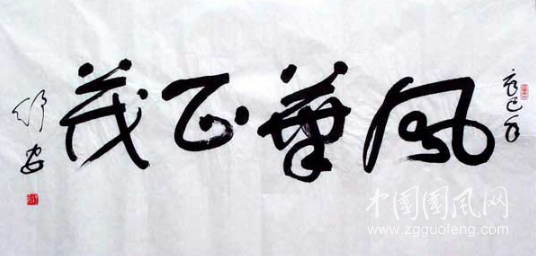 風華正茂
中國國風网
www.zgguofeng.com